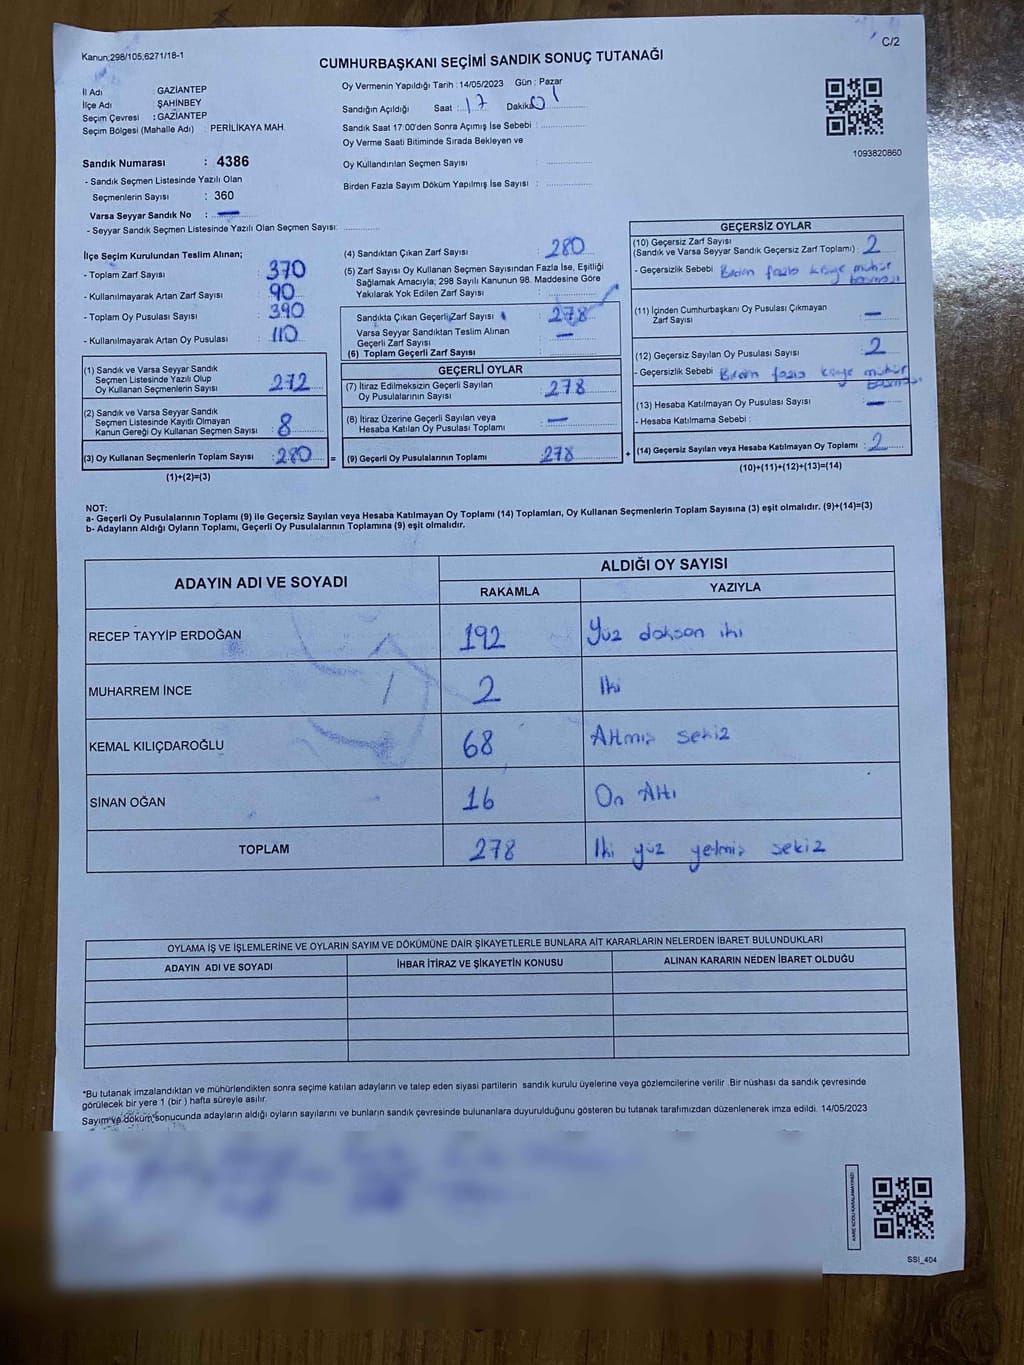 Kanun:298/105,6271/18-1
C/2
CUMHURBAŞKANI SEÇİMİ SANDIK SONUÇ TUTANAĞI
İl Adı GAZİANTEP
İlçe Adı ŞAHİNBEY
Seçim Çevresi : GAZİANTEP
Seçim Bölgesi (Mahalle Adı) : PERİLİKAYA MAH.
Sandık Numarası : 4386
- Sandık Seçmen Listesinde Yazılı Olan
Seçmenlerin Sayısı : 360
Varsa Seyyar Sandık No : —
- Seyyar Sandık Seçmen Listesinde Yazılı Olan Seçmen Sayısı:
Oy Vermenin Yapıldığı Tarih : 14/05/2023 Gün : Pazar
Sandığın Açıldığı Saat : 17 Dakika 01
Sandık Saat 17:00'den Sonra Açımış İse Sebebi :
Oy Verme Saati Bitiminde Sırada Bekleyen ve
Oy Kullandırılan Seçmen Sayısı :
Birden Fazla Sayım Döküm Yapılmış İse Sayısı :
1093820860
İlçe Seçim Kurulundan Teslim Alınan;
- Toplam Zarf Sayısı : 370
- Kullanılmayarak Artan Zarf Sayısı : 90
- Toplam Oy Pusulası Sayısı : 390
- Kullanılmayarak Artan Oy Pusulası : 110
(1) Sandık ve Varsa Seyyar Sandık
Seçmen Listesinde Yazılı Olup
Oy Kullanan Seçmenlerin Sayısı : 272
(2) Sandık ve Varsa Seyyar Sandık
Seçmen Listesinde Kayıtlı Olmayan
Kanun Gereği Oy Kullanan Seçmen Sayısı : 8
(3) Oy Kullanan Seçmenlerin Toplam Sayısı : 280
(1)+(2)=(3)
=
(4) Sandıktan Çıkan Zarf Sayısı : 280
(5) Zarf Sayısı Oy Kullanan Seçmen Sayısından Fazla İse, Eşitliği
Sağlamak Amacıyla; 298 Sayılı Kanunun 98. Maddesine Göre
Yakılarak Yok Edilen Zarf Sayısı :
Sandıkta Çıkan Geçerli Zarf Sayısı : 278
Varsa Seyyar Sandıktan Teslim Alınan
Geçerli Zarf Sayısı : —
(6) Toplam Geçerli Zarf Sayısı :
GEÇERLİ OYLAR
(7) İtiraz Edilmeksizin Geçerli Sayılan
Oy Pusulalarının Sayısı : 278
(8) İtiraz Üzerine Geçerli Sayılan veya
Hesaba Katılan Oy Pusulası Toplamı : —
(9) Geçerli Oy Pusulalarının Toplamı : 278
+
GEÇERSİZ OYLAR
(10) Geçersiz Zarf Sayısı
(Sandık ve Varsa Seyyar Sandık Geçersiz Zarf Toplamı) : 2
- Geçersizlik Sebebi : Birden fazla kişiye mühür
basması
(11) İçinden Cumhurbaşkanı Oy Pusulası Çıkmayan
Zarf Sayısı : —
(12) Geçersiz Sayılan Oy Pusulası Sayısı : 2
- Geçersizlik Sebebi : Birden fazla kişiye mühür
basması
(13) Hesaba Katılmayan Oy Pusulası Sayısı : —
- Hesaba Katılmama Sebebi :
(14) Geçersiz Sayılan veya Hesaba Katılmayan Oy Toplamı : 2
(10)+(11)+(12)+(13)=(14)
NOT:
a- Geçerli Oy Pusulalarının Toplamı (9) ile Geçersiz Sayılan veya Hesaba Katılmayan Oy Toplamı (14) Toplamları, Oy Kullanan Seçmenlerin Toplam Sayısına (3) eşit olmalıdır. (9)+(14)=(3)
b- Adayların Aldığı Oyların Toplamı, Geçerli Oy Pusulalarının Toplamına (9) eşit olmalıdır.
ADAYIN ADI VE SOYADI ALDIĞI OY SAYISI
RAKAMLA YAZIYLA
RECEP TAYYİP ERDOĞAN 192 Yüz doksan iki
MUHARREM İNCE 2 İki
KEMAL KILIÇDAROĞLU 68 Altmış sekiz
SİNAN OĞAN 16 On Altı
TOPLAM 278 İki yüz yetmiş sekiz
OYLAMA İŞ VE İŞLEMLERİNE VE OYLARIN SAYIM VE DÖKÜMÜNE DAİR ŞİKAYETLERLE BUNLARA AİT KARARLARIN NELERDEN İBARET BULUNDUKLARI
ADAYIN ADI VE SOYADI İHBAR İTİRAZ VE ŞİKAYETİN KONUSU ALINAN KARARIN NEDEN İBARET OLDUĞU
*Bu tutanak imzalandıktan ve mühürlendikten sonra seçime katılan adayların ve talep eden siyasi partilerin sandık kurulu üyelerine veya gözlemcilerine verilir .Bir nüshası da sandık çevresinde
görülecek bir yere 1 (bir ) hafta süreyle asılır.
Sayım ve döküm sonucunda adayların aldığı oyların sayılarını ve bunların sandık çevresinde bulunanlara duyurulduğunu gösteren bu tutanak tarafımızdan düzenlenerek imza edildi. 14/05/2023
KARE KODU KARALAMAYINIZ!
SSI_404